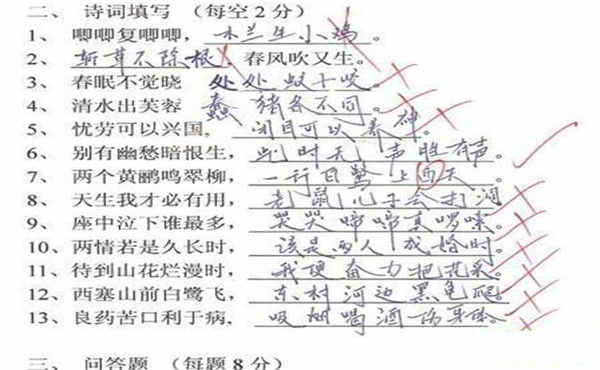 二、 诗词填写 （每空2分）
1、 唧唧复唧唧， 木兰生小鸡 。
2、 斩草不除根，春风吹又生。
3、 春眠不觉晓 处处蚊子咬。
4、 清水出芙蓉 蠢猪各不同。
5、 忧劳可以兴国， 闭目可以养神。
6、 别有幽愁暗恨生，此时无声胜有声。
7、 两个黄鹂鸣翠柳，一行白鹭上西天。
8、 天生我才必有用，老鼠儿子会打洞
9、 座中泣下谁最多，哭哭啼啼真啰嗦。
10、 两情若是久长时，该是两人成婚时。
11、 待到山花烂漫时，我便奋力把花采。
12、 西塞山前白鹭飞，东村河边黑龟爬。
13、 良药苦口利于病，吸烟喝酒伤身体。
三、 问答题 （每题8分）